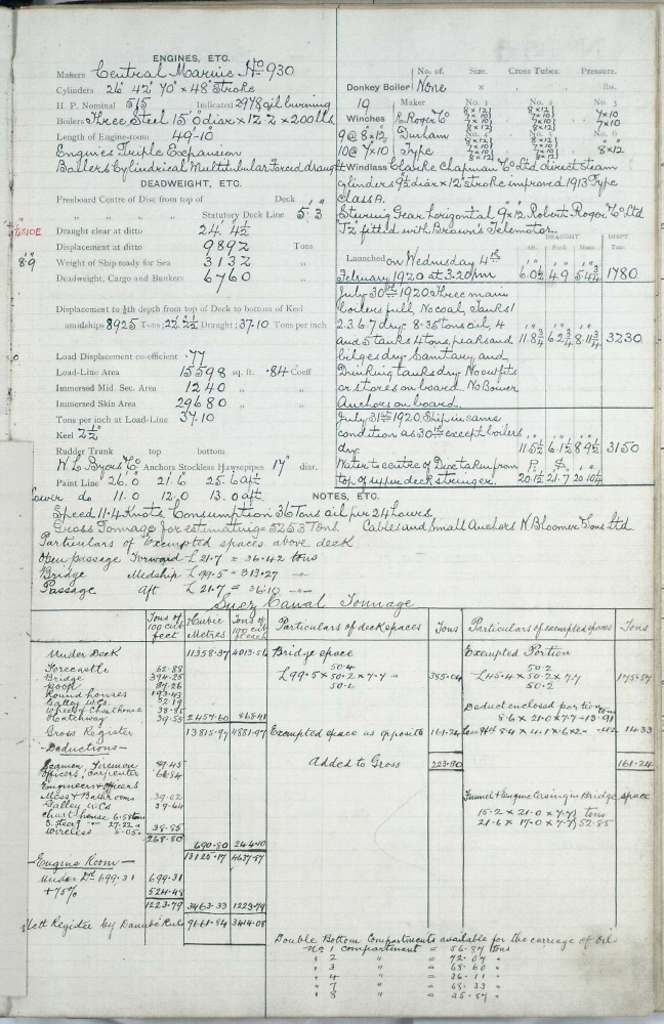 ENGINES, ETC.
Makers Central Marine No 930
Cylinders 26" 42" 70" × 48" Stroke
H. P. Nominal 515 Indicated 2978 oil burning
Boilers Three Steel 15'0 diar × 12' 2 × 200 lbs.
Length of Engine-room 49-10
Engines Triple Expansion
Boilers Cylindrical Multitubular Forced draught
DEADWEIGHT, ETC.
Freeboard Centre of Disc from top of Deck
Statutory Deck Line 5' 3"
Draught clear at ditto 24. 4½
Displacement at ditto 9892 Tons
Weight of Ship ready for Sea 3132
Deadweight, Cargo and Bunkers 6760
Displacement to depth from top of Deck to bottom of Keel
amidships 8925 Tons; 22. 2½ Draught; 37.10 Tons per inch
Load Displacement co-efficient .77
Load-Line Area 15598 sq. ft. .84 Coeff
Immersed Mid. Sec. Area 1240
Immersed Skin Area 29680
Tons per inch at Load-Line 37.10
Keel 2½
Rudder Trunk top bottom
W. L. Byers & Co Anchors Stockless Hawsepipes 17" diar.
Paint Line 26.0 21.6 25.6 aft
Lower do 11.0 12.0 13.0 aft
No. of. Size. Cross Tubes. Pressure.
Donkey Boiler None × lbs.
19 Maker No. 1 No. 2 No. 3
Winches R Roger & Co 8×12 7×10
9 @ 8×12 Durham No. 6
10 @ 7×10 Type 8×12
Windlass Clarke Chapman & Co Ltd direct steam
cylinders 9½ diar × 12" stroke improved 1913 Type
Class A.
Steering Gear horizontal 9×12 Robert Roger & Co Ltd
fitted with Brown's Telemotor.
DRAUGHT DISPT.
Aft. Ford. Mean. Tons
Launched on Wednesday 4th
February 1920 at 3.20 pm 6.0½ 4.9 1780
July 30th 1920 Three main
boilers full, No coal, Tanks 1
2.3.6.7 dry. 8-35 tons oil, 4
and 5 tanks 4 tons, peaks and 11.8¾ 6.2¾ 8.11¾ 3230
bilges dry Sanitary and
Drinking tanks dry No outfits
or stores on board. No Bower
Anchors on board.
July 31st 1920, Ship in same
condition as 30th except boilers
dry 11.5½ 6.1½ 8.9½ 3150
Water to centre of Disc taken from P. S.
top of upper deck stringer. 20.1½ 21.7
NOTES, ETC.
Speed 11.4 Knots Consumption 36 Tons oil per 24 hours.
Gross Tonnage for estimating 5253 Tons. Cables and Small Anchors N. Bloomer & Sons Ltd
Particulars of Exempted spaces above deck
Open passage Forward L 21.7 = 36.42 tons
Bridge Medship L 99.5 = 313.27
Passage Aft L 21.7 = 36.10
Suez Canal Tonnage
Tons of 100 cub feet Cubic Metres Tons of 100 cub ft each Particulars of deck spaces Tons Particulars of exempted spaces Tons
Under Deck 11358.37 4013.56 Bridge space Exempted Portion
Forecastle 62.88 50.4 50.2
Bridge 394.25 L 99.5 × 50.2 × 7.7 385.04 L 45.4 × 50.2 × 7.7 175.57
Poop 87.26 50.2
Round houses 193.43
Galley WCs 52.19 Deduct enclosed portion tons
Wheel & Charthouse 38.85 8.6 × 21.0 × 7.7 = 13.91
Hatchway 39.55 2457.60 868.41
Gross Register 13815.97 4881.97 Exempted space as opposite 161.24 14.33
Deductions
Seamen, Firemen 89.45 Added to Gross 223.80 161.24
Officers, Carpenter 62.54
Engineers & Officers
Mess & Bathrooms 39.02 Funnel & Engine Casing in Bridge space
Galley WCs 39.64 15.2 × 21.0 × 7.7 tons
Chart house 6.58 tons 21.6 × 17.0 × 7.7 52.85
S. Gear 27.22
Wireless 5.05 38.85
268.80 690.80 244.10
13125.17 4637.87
Engine Room
Under Dk 699.31 699.31
+ 75% 524.48
1223.79 3463.33 1223.79
Nett Register by Danube Rule 9661.84 3414.08
Double Bottom Compartments available for the carriage of Oil
No 1 compartment = 56.87 tons
2 " = 72.07
3 " = 68.60
4 " = 36.11
7 " = 68.33
8 " = 25.87